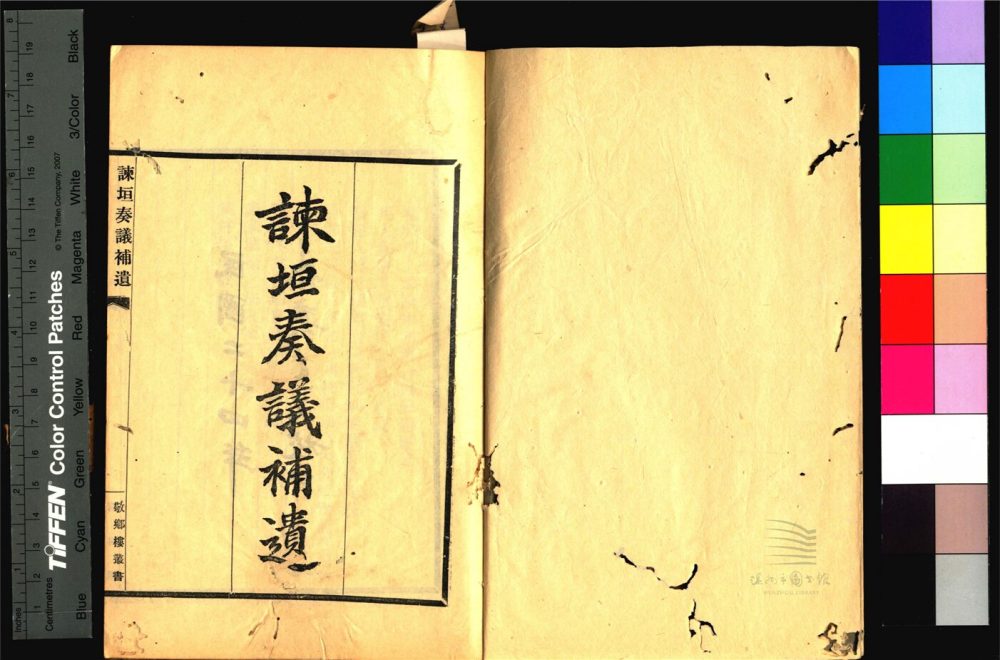 諫垣奏議補遺
諫垣奏議補遺
敬鄉樓叢書
温州市图书馆
WENZHOU LIBRARY
TIFFEN® Color Control Patches
© The Tiffen Company, 2007
Inches
1
2
3
4
5
6
7
8
Centimetres
1
2
3
4
5
6
7
8
9
10
11
12
13
14
15
16
17
18
19
Blue
Cyan
Green
Yellow
Red
Magenta
White
3/Color
Black